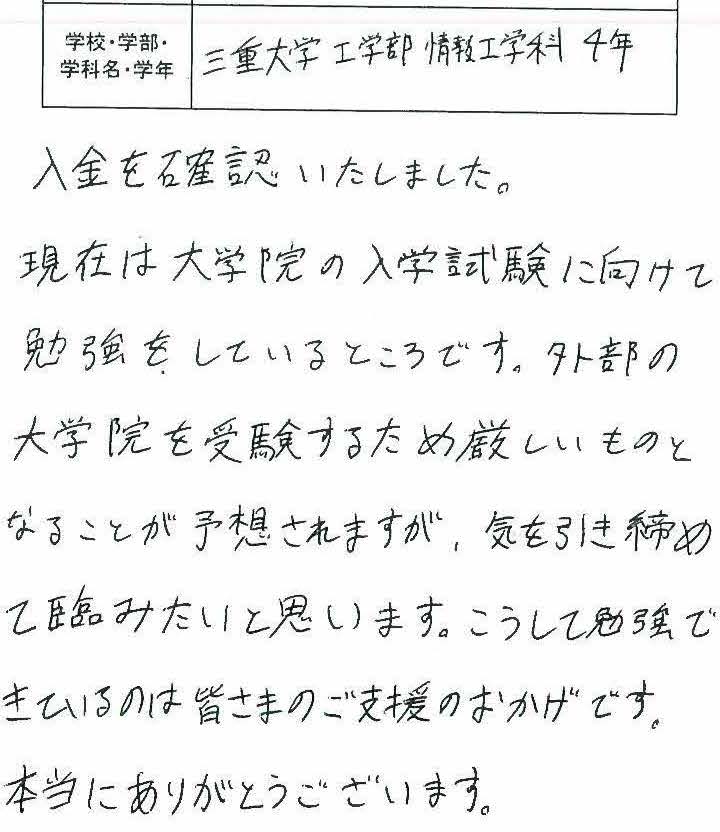 学校・学部・
学科名・学年
三重大学 工学部 情報工学科 4年
入金を確認いたしました。
現在は大学院の入学試験に向けて
勉強をしているところです。外部の
大学院を受験するため厳しいものと
なることが予想されますが、気を引き締め
て臨みたいと思います。こうして勉強で
きているのは皆さまのご支援のおかげです。
本当にありがとうございます。